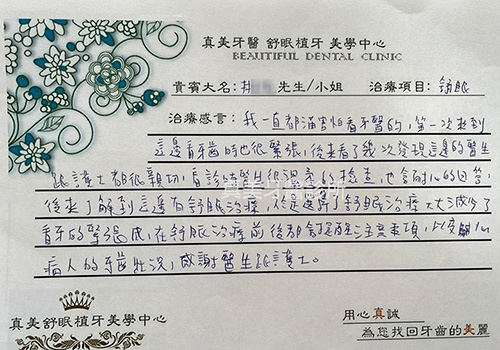 真美牙醫 舒眠植牙 美學中心
BEAUTIFUL DENTAL CLINIC
貴賓大名: 先生/小姐 治療項目: 舒眠
治療感言: 我一直都滿害怕看牙醫的,第一次來到
這邊看牙齒時也很緊張,後來看了幾次發現這邊的醫生
跟護士都很親切,看診時醫生很溫柔的檢查,也會耐心的回答,
後來了解到這邊有舒眠治療,於是選擇了舒眠治療大大減少了
看牙的緊張感,在舒眠治療前後都有提醒注意事項,以及關心
病人的牙齒狀況,感謝醫生跟護士。
真美舒眠植牙美學中心
用心真誠
為您找回牙齒的美麗